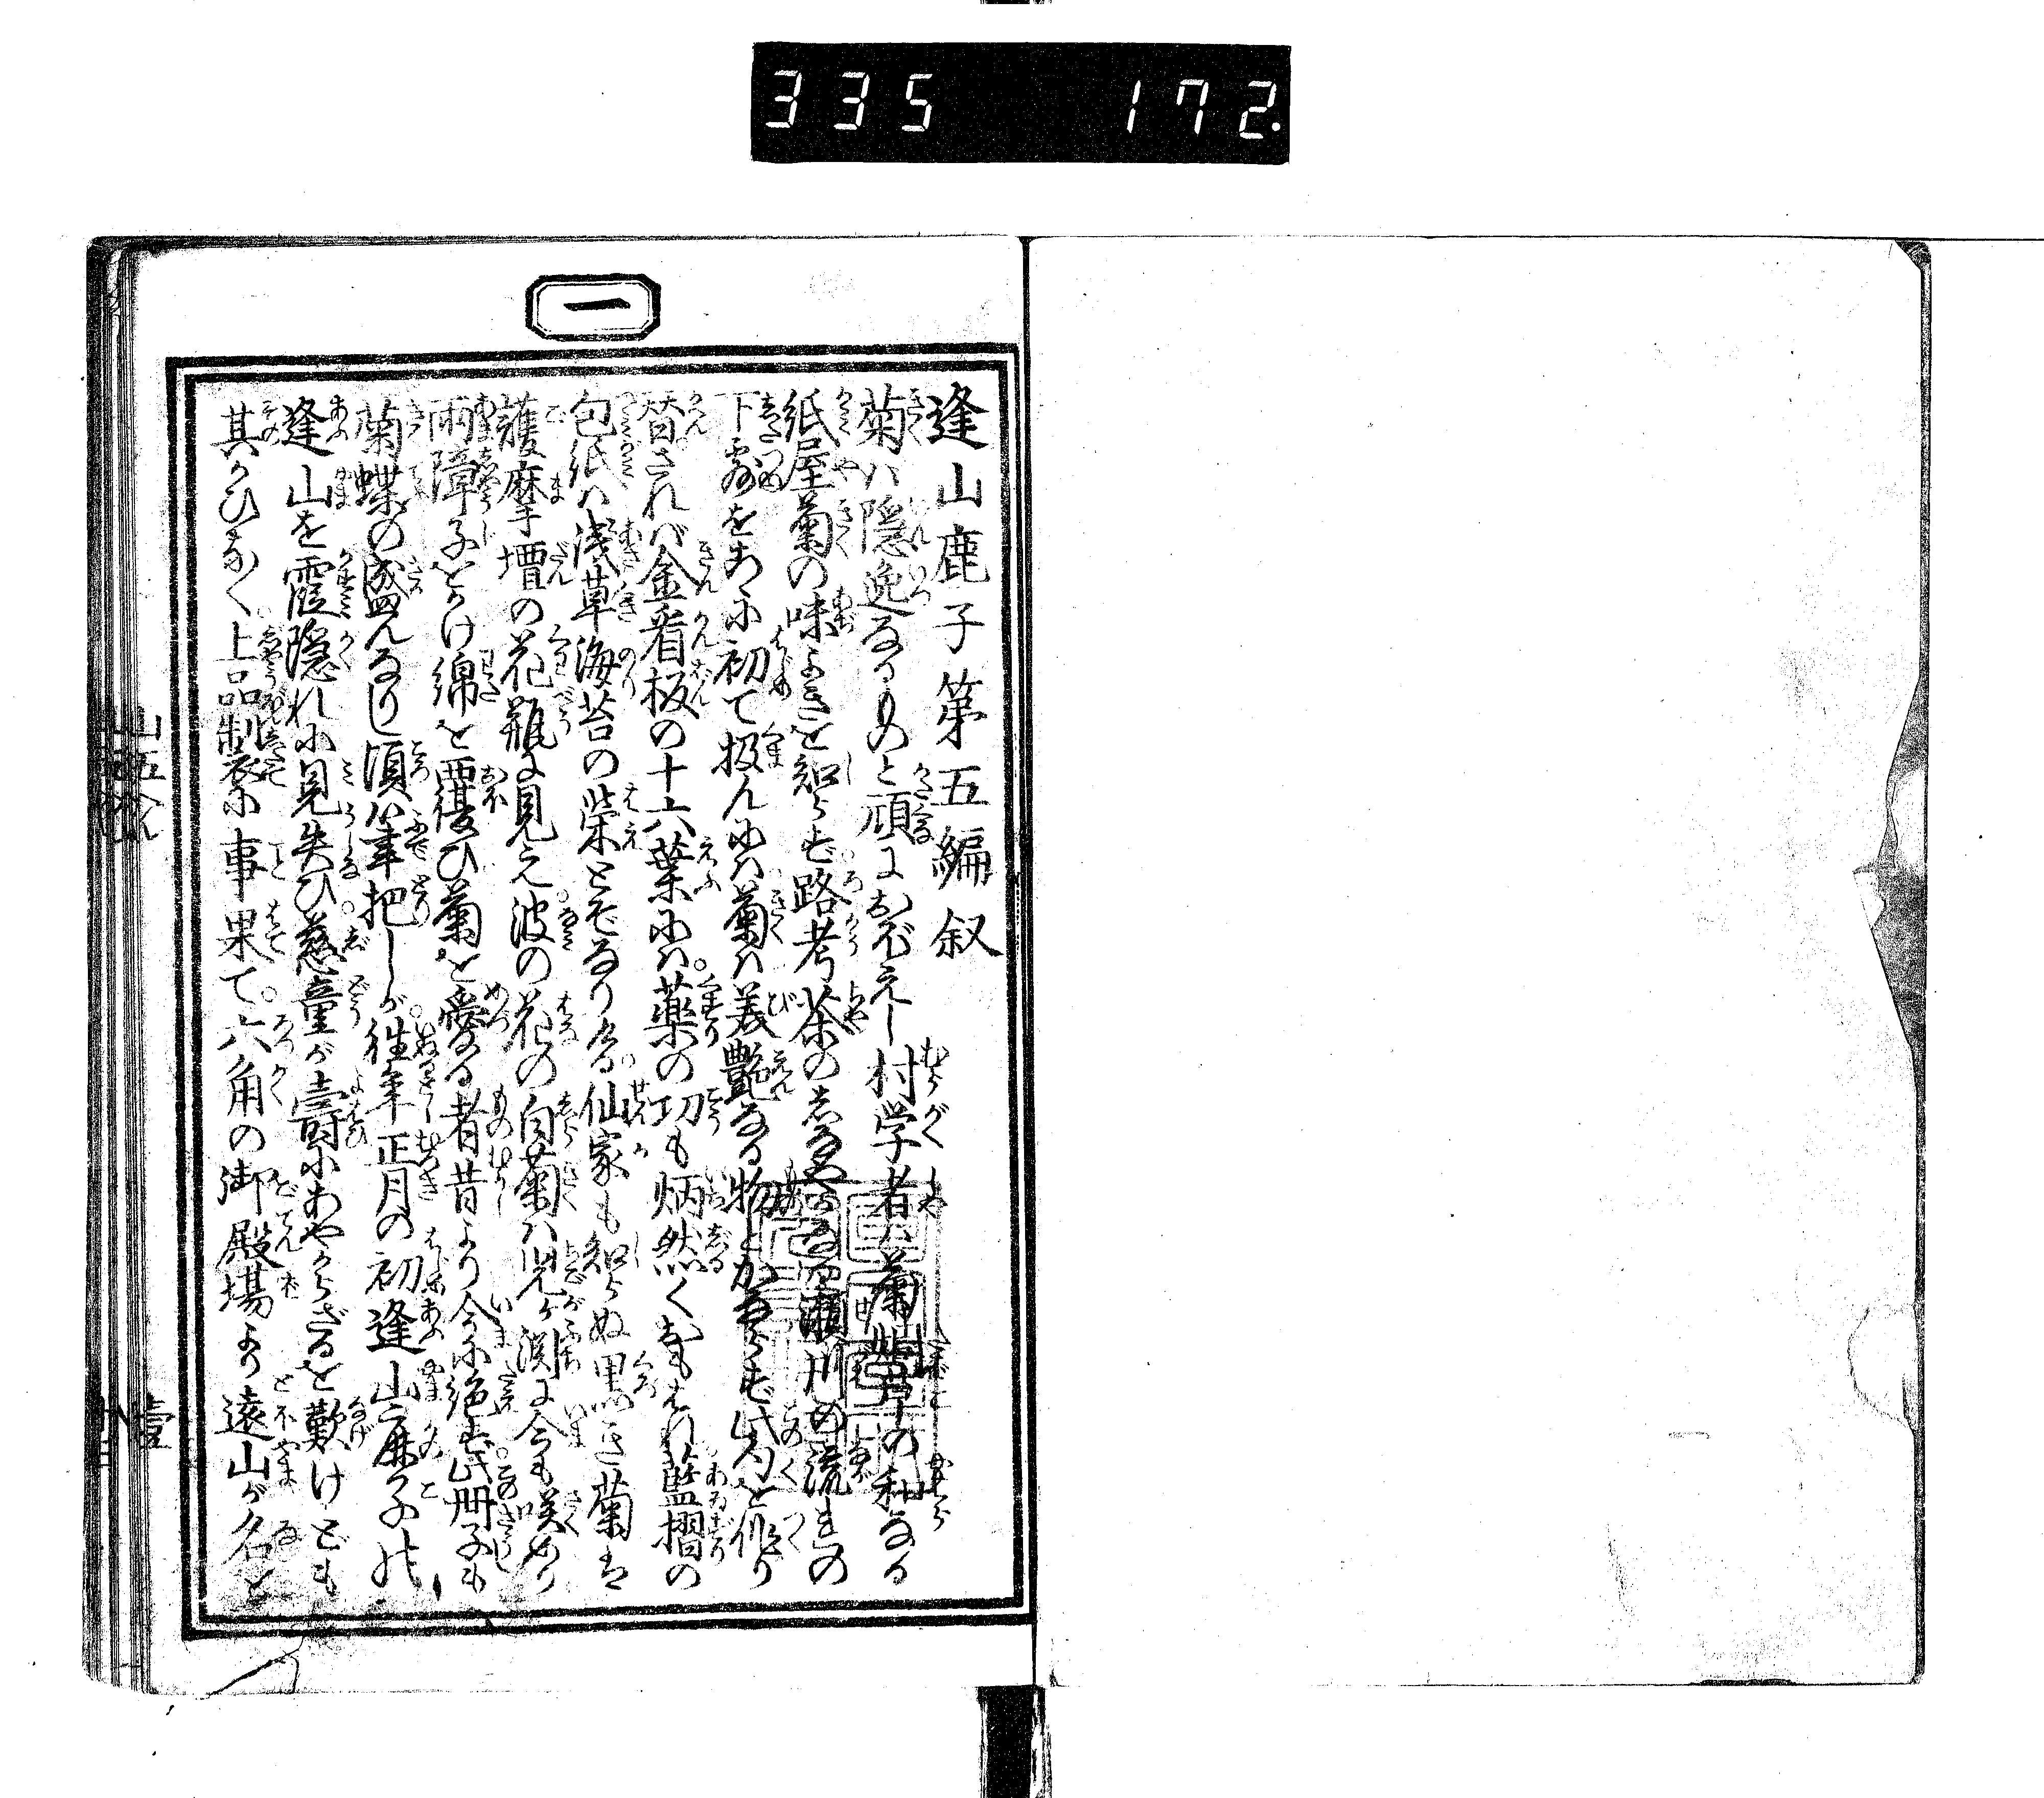 335 172.
一
逢山鹿子第五編叙
菊ハ隠逸なるものと頑におぼえし村学者ハ菊の和なる
紙屋菊の味よきを知らず路考茶の瀬川の流れの
下露をあふ初て扱んゆハ菊ハ美艶なる物とかならず此句を作り
替されバ金看板の十六葉にハ薬の功も炳然く藍摺の
包紙ハ浅草海苔の栄とぞなりける仙家も知らぬ黒き菊は
護摩壇の花瓶に見え波の花の白菊ハ児ヶ渕に今も咲めり
雨障子をかけ綿を覆ひ菊を愛る者昔より今に絶ず此冊子も
菊蝶の盛んなりし頃筆把しが往年正月の初逢山鹿子の
逢山を霞隠れに見失ひ慈童が壽にあやからざるを歎けども
其かひなく上品製に事果て六角の御殿場より遠山が名と
山五へん
壹